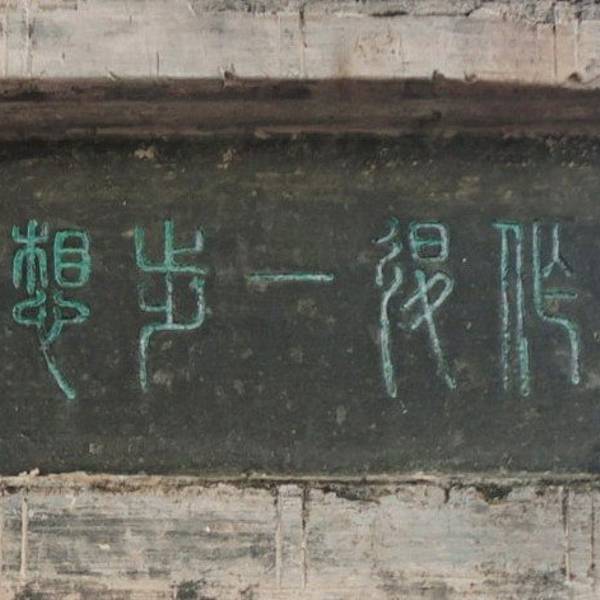 作退一步想